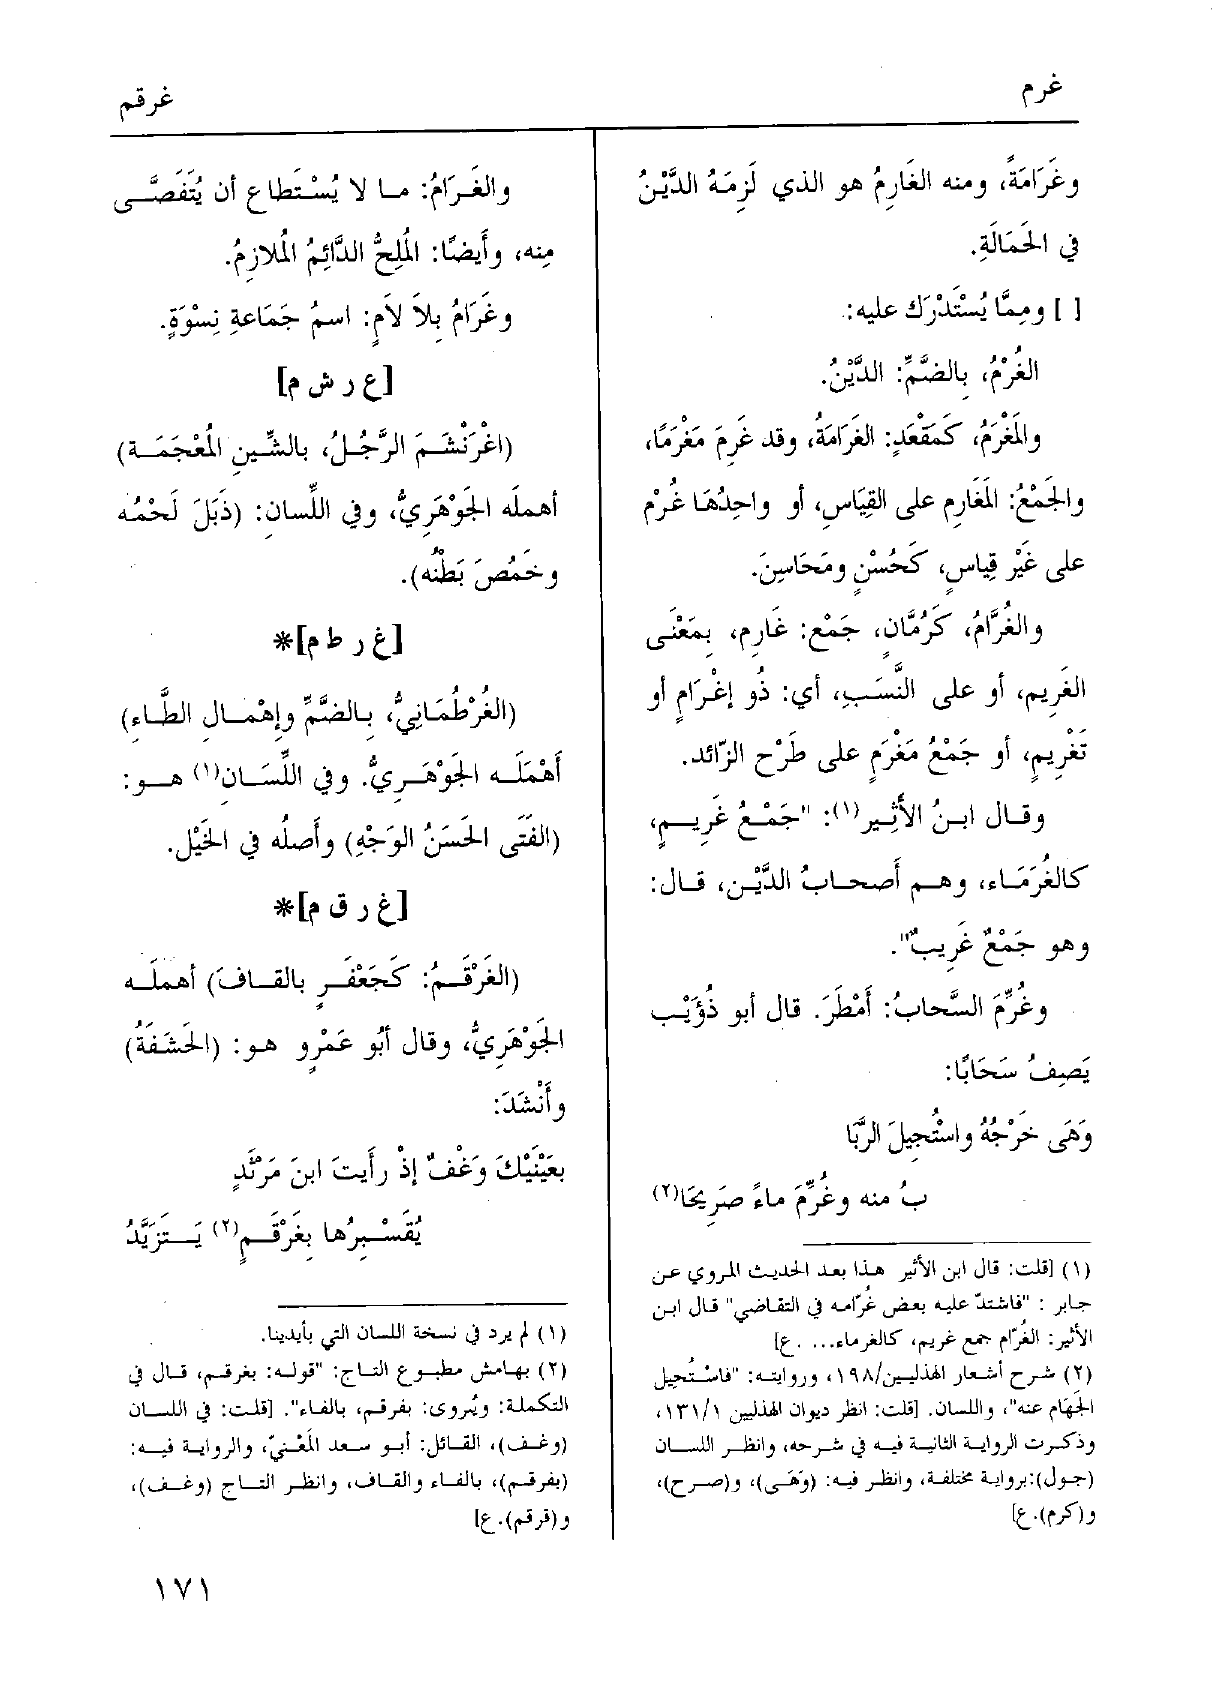 غرم
غرقم
وغَرَامَةً، ومنه الغَارِمُ هو الذي لَزِمَهُ الدَّيْنُ
في الحَمَالَةِ.
[ ] ومِمَّا يُسْتَدْرَك عليه:
الغُرْمُ، بِالضَّمِّ: الدَّيْنُ.
والمَغْرَمُ، كَمَقْعَدٍ: الغَرَامَةُ، وقد غَرِمَ مَغْرَمًا،
والجَمْعُ: المَغَارِم على القِيَاسِ، أو واحِدُهَا غُرْم
على غَيْر قِياسٍ، كَحُسْنٍ ومَحَاسِنَ.
والغُرَّامُ، كَرُمَّانٍ، جَمْع: غَارِمٍ، بِمَعْنَى
الغَرِيم، أو على النَّسَبِ، أي: ذُو إغْرَامٍ أو
تَغْرِيمٍ، أو جَمْعُ مَغْرَمٍ على طَرْحِ الزّائد.
وقال ابنُ الأَثِير(١): "جَمْعُ غَرِيمٍ،
كالغُرَمَاء، وهم أَصحابُ الدَّيْن، قال:
وهو جَمْعٌ غَرِيبٌ".
وغُرِّمَ السَّحابُ: أَمْطَرَ. قال أبو ذُؤَيْب
يَصِفُ سَحَابًا:
وَهَى خَرْجُهُ واسْتُجِيلَ الرَّبَا
بُ منه وغُرِّمَ ماءً صَرِيحَا(٢)
(١) [قلت: قال ابن الأثير هذا بعد الحديث المروي عن
جابر : "فاشتدّ عليه بعض غُرّامه في التقاضي" قال ابن
الأثير: الغُرّام جمع غريم، كالغرماء... .ع]
(٢) شرح أشعار الهذليين/١٩٨، وروايته: "فاسْتُحيل
الجَهَام عنه"، واللسان. [قلت: انظر ديوان الهذليين ١٣١/١،
وذكرت الرواية الثانية فيه في شرحه، وانظر اللسان
(جول):برواية مختلفة، وانظر فيه: (وَهَى)، و(صرح)،
و(كرم).ع]
والغَرَامُ: ما لا يُسْتَطاع أن يُتَفَصَّى
مِنه، وأَيضًا: المُلِحُّ الدَّائِمُ المُلازِمُ.
وغَرَامُ بِلاَ لاَمٍ: اسمُ جَمَاعةِ نِسْوَةٍ.
[ع ر ش م]
(اغْرَنْشَمَ الرَّجُلُ، بالشِّينِ المُعْجَمَة)
أهملَه الجَوْهَرِيُّ، وفي اللِّسان: (ذَبَلَ لَحْمُه
وخَمُصَ بَطْنُه).
[غ ر ط م]*
(الغُرْطُمَانِيُّ، بِالضَّمِّ وإِهْمَالِ الطَّاءِ)
أَهْمَلَه الجَوْهَرِيُّ. وفي اللِّسَان(١) هو:
(الفَتَى الحَسَنُ الوَجْهِ) وأَصلُه في الخَيْل.
[غ ر ق م]*
(الغَرْقَمُ: كَجَعْفَرٍ بالقافَ) أهملَه
الجَوْهَرِيُّ، وقال أبُو عَمْرٍو هو: (الحَشَفَةُ)
وأَنْشَدَ:
بعَيْنَيْكَ وَغْفٌ إذْ رأَيتَ ابنَ مَرْثَدٍ
يُقَسْبِرُها بِغَرْقَمٍ(٢) يَتَزَيَّدُ
(١) لم يرد في نسخة اللسان التي بأيدينا.
(٢) بهامش مطبوع التاج: "قوله: بغرقم، قال في
التكملة: ويُروى: بفرقم، بالفاء". [قلت: في اللسان
(وغف)، القائل: أبو سعد المَعْنيّ، والرواية فيه:
(بفرقم)، بالفاء والقاف، وانظر التاج (وغف)،
و(قرقم).ع]
١٧١